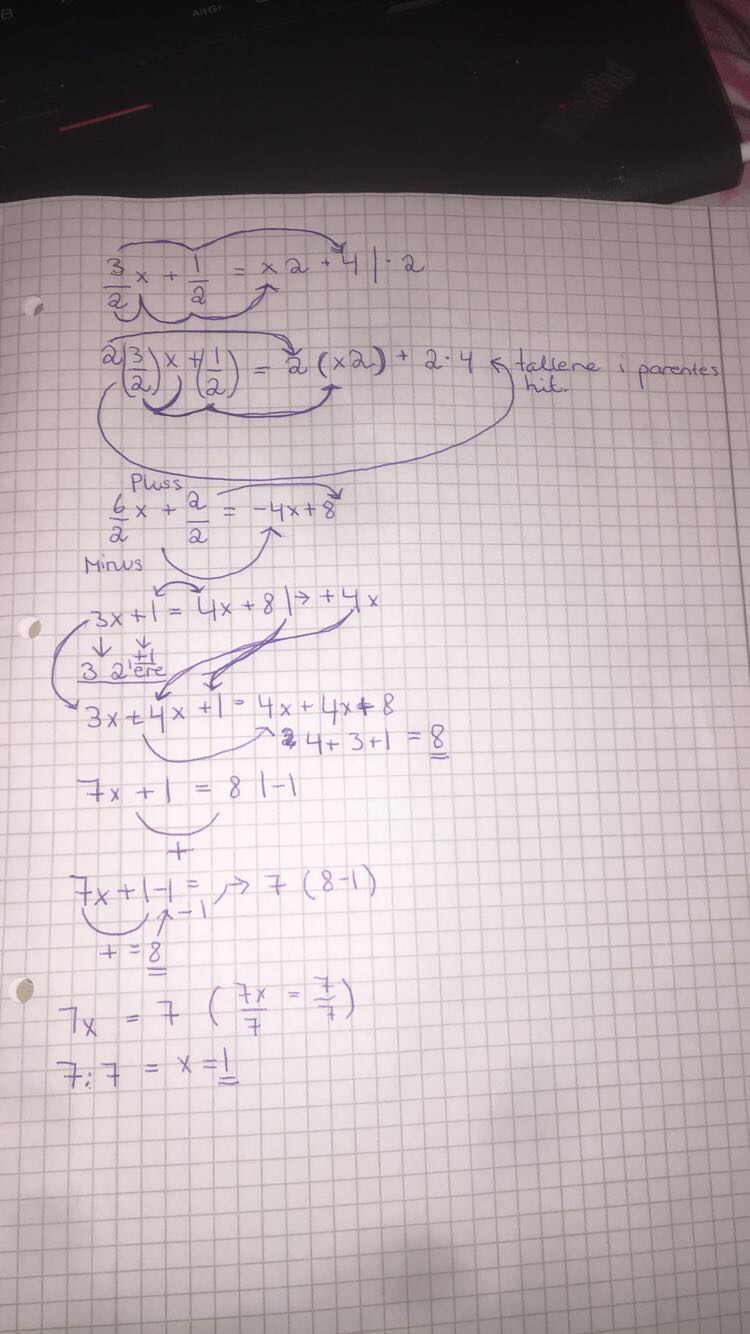 AltGr
ThinkPad
3/2 x + 1/2 = x2 + 4 | · 2
2(3/2)x + (1/2) = 2(x2) + 2·4 ← tallene i parentes hit.
Pluss
6/2 x + 2/2 = -4x+8
Minus
3x+1 = 4x+8 |→ +4x
3 2'ere +1
3x+4x+1 = 4x+4x+8
4+3+1 = 8
7x+1 = 8 |-1
+
7x+1-1 = , → 7 (8-1)
-1
+ = 8
7x = 7 (7x/7 = 7/7)
7:7 = x=1